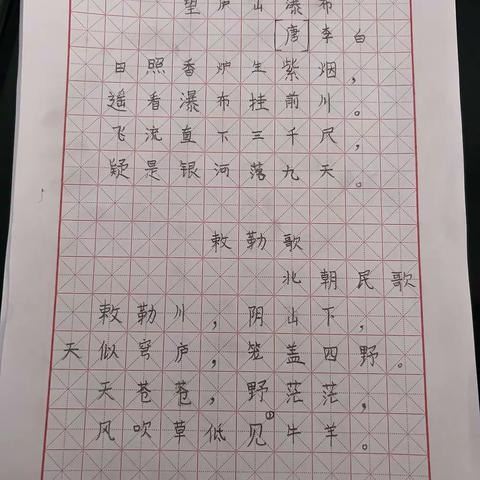 望庐山瀑布
[唐]李白
日照香炉生紫烟，
遥看瀑布挂前川。
飞流直下三千尺，
疑是银河落九天。
敕勒歌
北朝民歌
敕勒川，阴山下，
天似穹庐，笼盖四野。
天苍苍，野茫茫，
风吹草低见①牛羊。